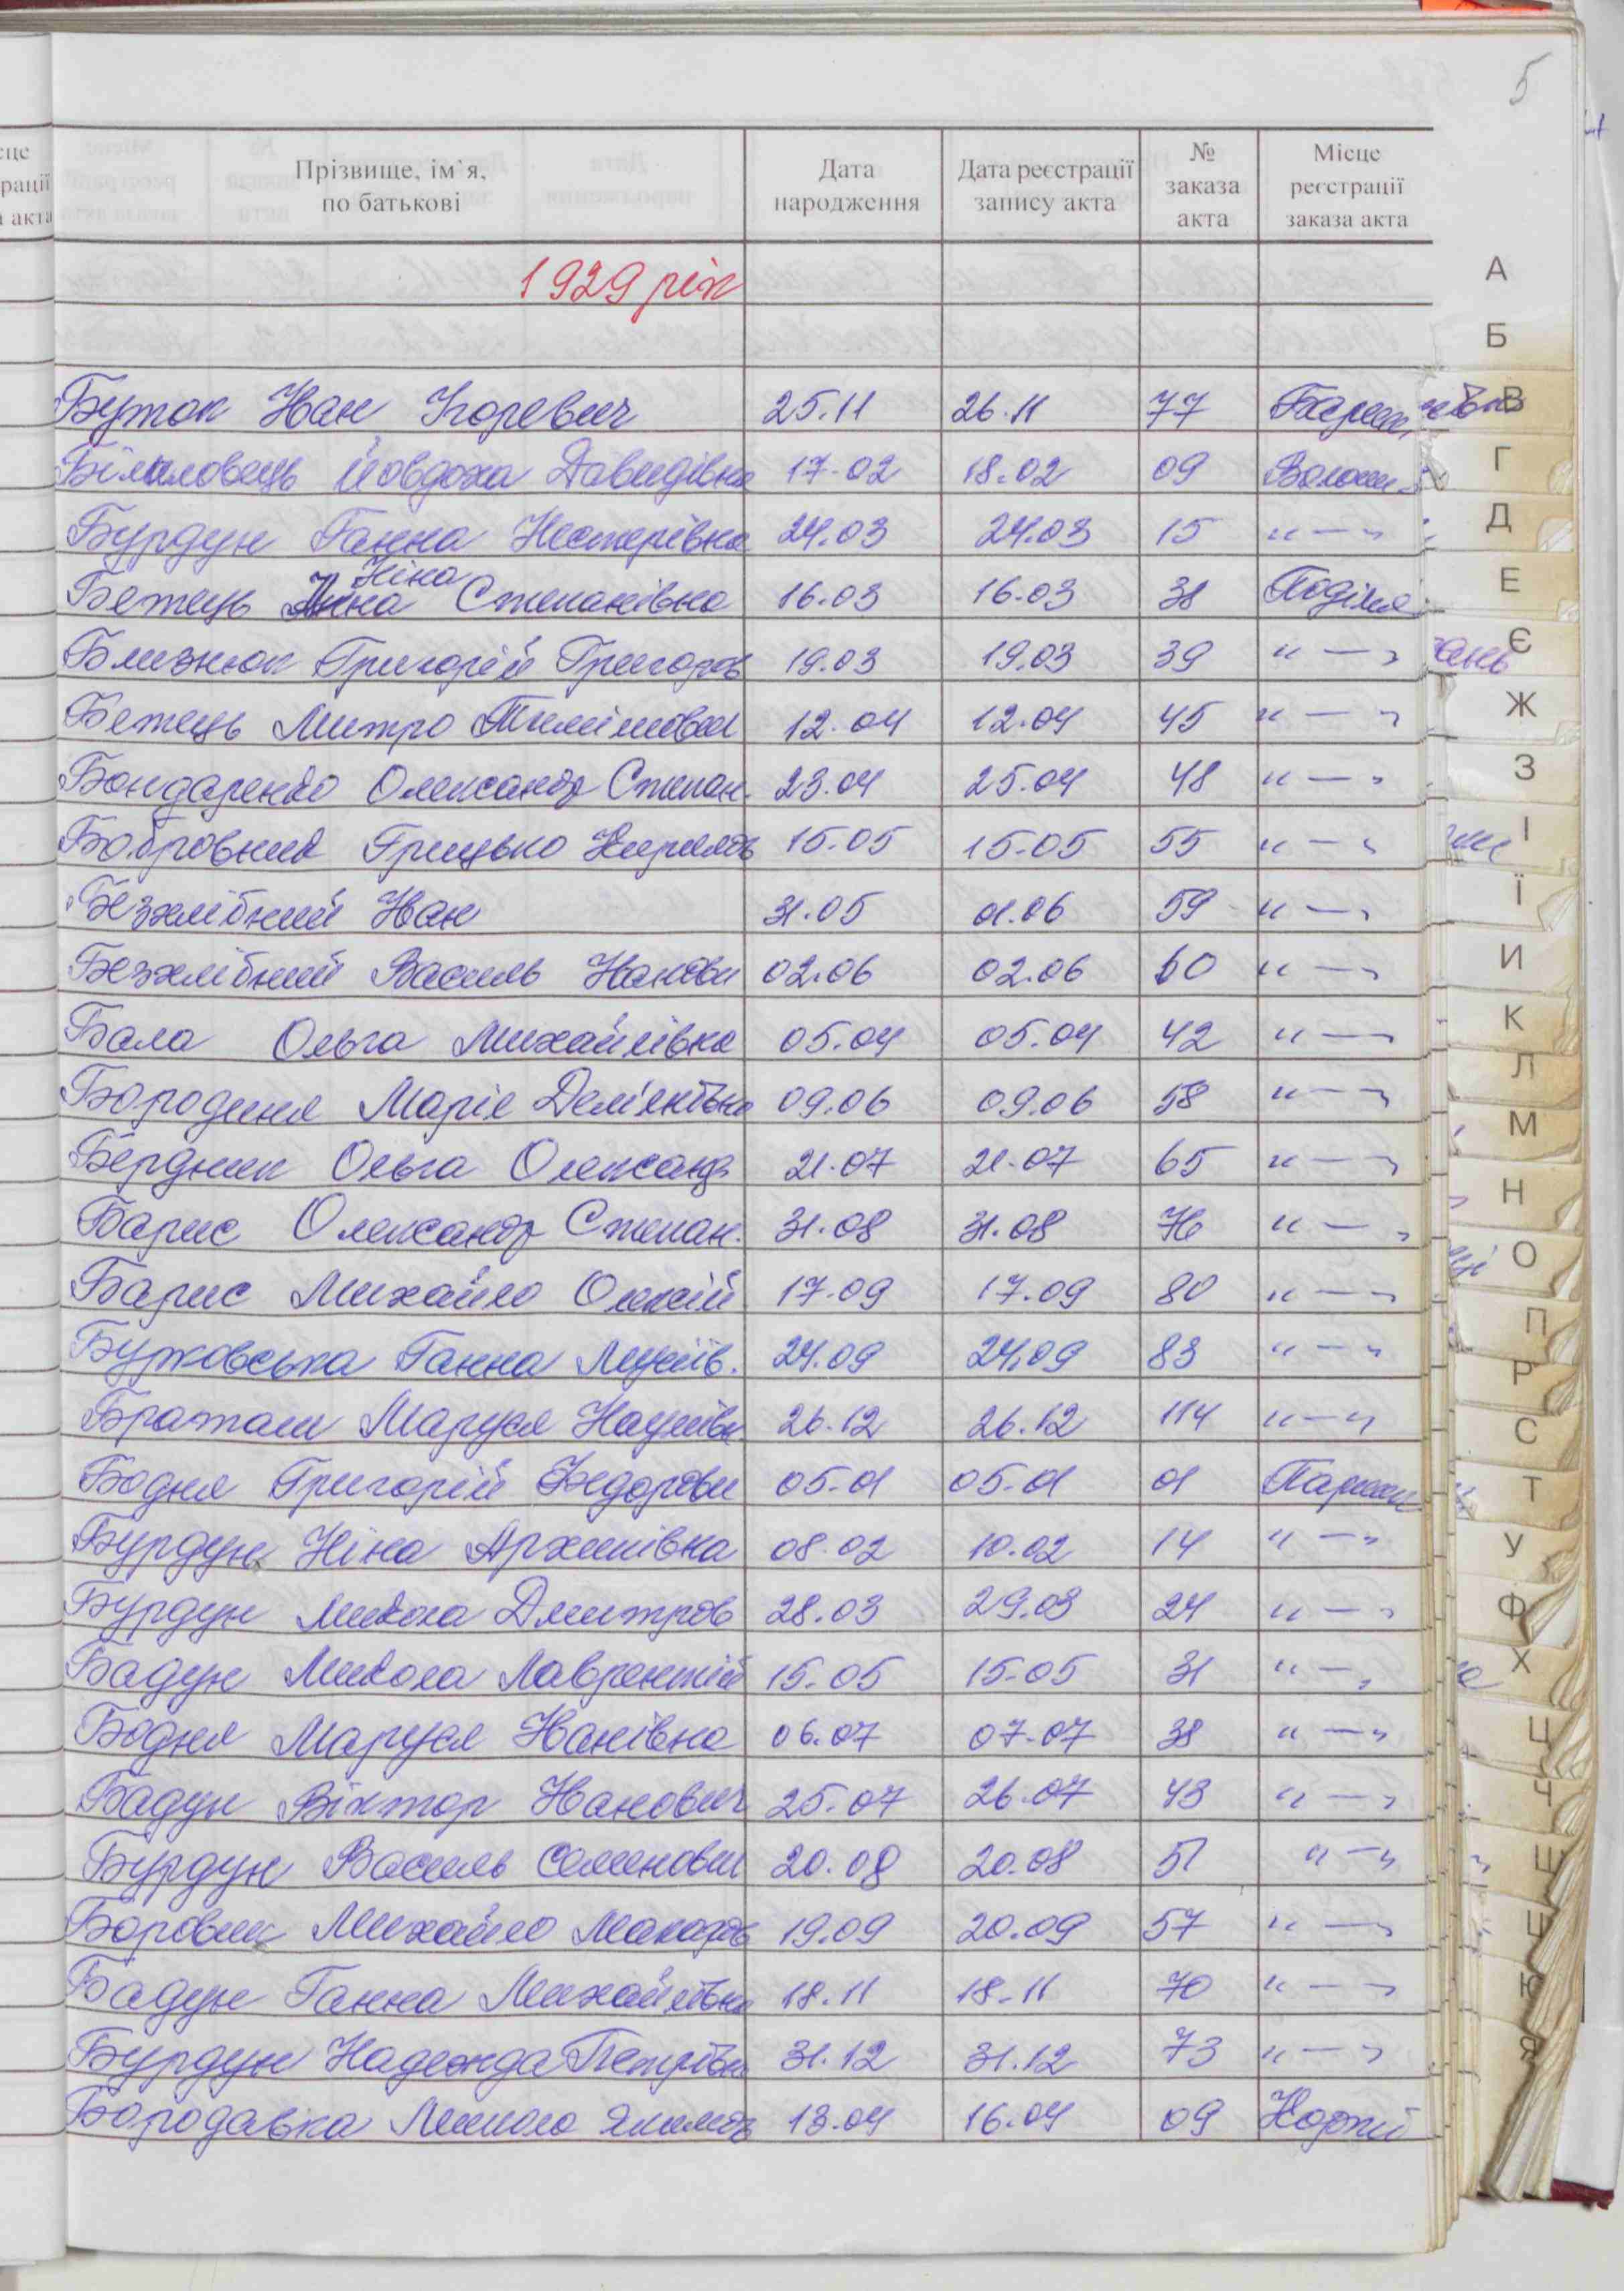 5
сце
рації
акта
Прізвище, ім`я, по батькові Дата народження Дата реєстрації запису акта № заказа акта Місце реєстрації заказа акта
1929 рік
Буток Іван Ігоревич 25.11 26.11 77
Йовдоха Давидівна 17-02 18.02 09 Волош
Бурдун Ганна Нестерівна 24.03 24.03 15 "—"
Бетець Ніна Степанівна 16.03 16.03 38 Поділля
Близнюк Григорій Григоров 19.03 19.03 39 "—"
Бетець Митро 12.04 12.04 45 "—"
Бондаренко Олександр Степан. 23.04 25.04 48 "—"
Бобровник Грицько Кирилов 15.05 15.05 55 "—"
Безхлібний Іван 31.05 01.06 59 "—"
Безхлібний Василь Іванови 02.06 02.06 60 "—"
Бала Ольга Михайлівна 05.04 05.04 42 "—"
Бородиня Марія Дем'янівна 09.06 09.06 58 "—"
Бердник Ольга Олександ. 21.07 21.07 65 "—"
Барис Олександр Степан. 31.08 31.08 76 "—"
Барис Михайло Олексій 17.09 17.09 80 "—"
Бужовська Ганна 24.09 24.09 83 "—"
Браташ Маруся Наумівн 26.12 26.12 114 "—"
Бодня Григорій Федорови 05.01 05.01 01 Пархом
Бурдун Ніна Архипівна 08.02 10.02 14 "—"
Бурдун Микола Дмитров 28.03 29.03 24 "—"
Бадун Микола Лаврентій 15.05 15.05 31 "—"
Бодня Маруся Іванівна 06.07 07.07 38 "—"
Бадун Віктор Іванович 25.07 26.07 43 "—"
Бурдун Василь Семенови 20.08 20.08 51 "—"
Боровик Михайло Макаров 19.09 20.09 57 "—"
Бадун Ганна Михайлівна 18.11 18.11 70 "—"
Бурдун Надежда Петрівна 31.12 31.12 73 "—"
Бородавка Микола Якимов 13.04 16.04 09
А
Б
В
Г
Д
Е
Є
Ж
З
І
Ї
И
К
Л
М
Н
О
П
Р
С
Т
У
Ф
Х
Ц
Ч
Ш
Щ
Ю
Я